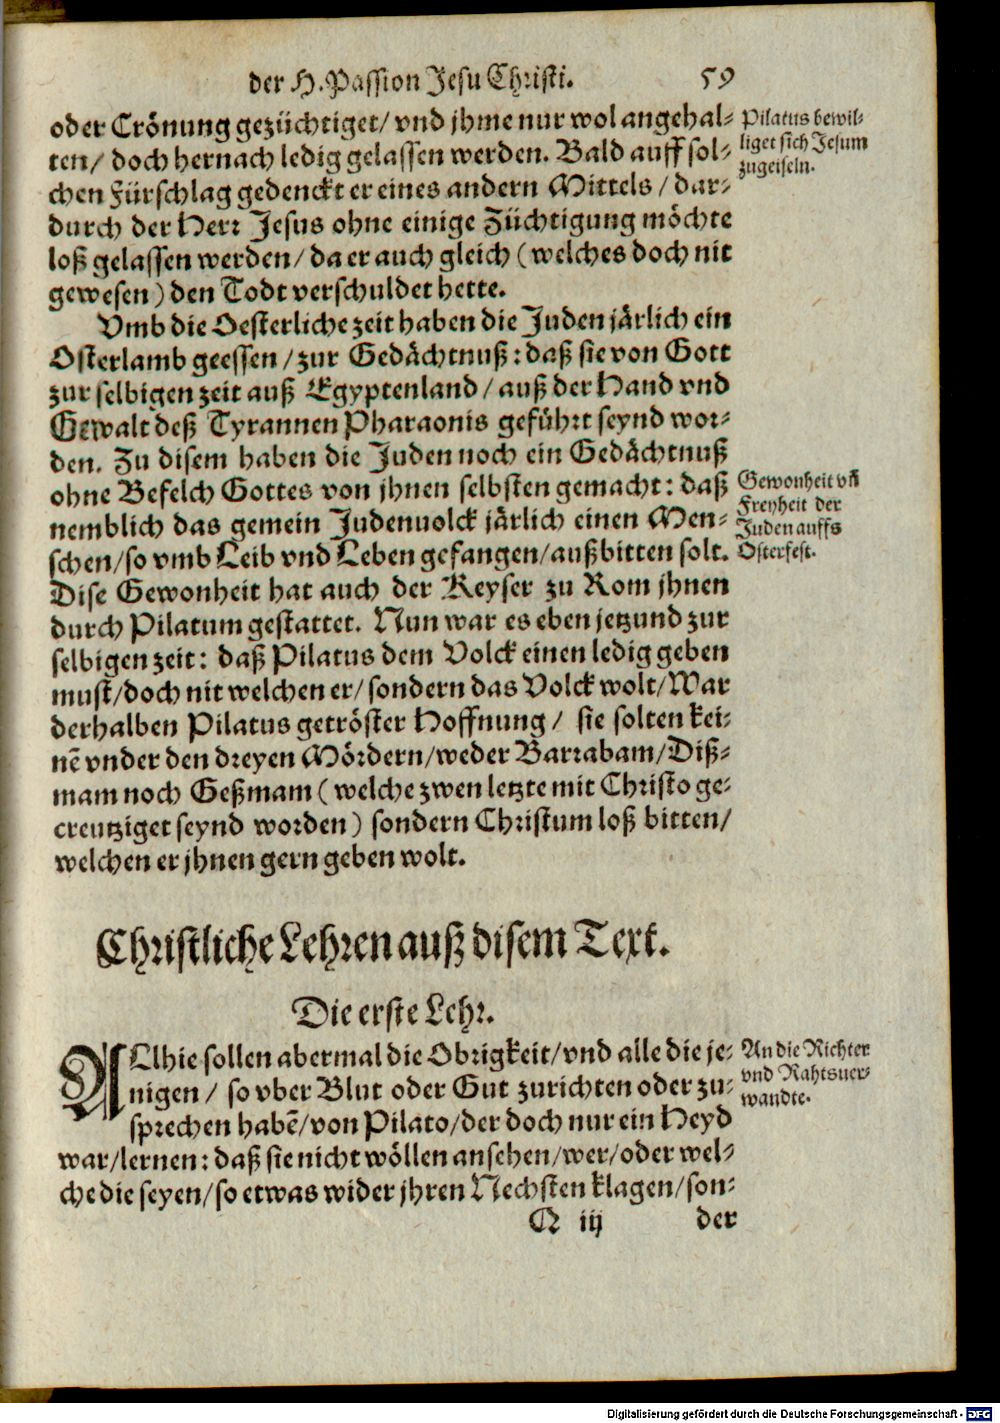 der H. Passion Jesu Christi. 59
oder Crönung gezüchtiget/ vnd jhme nur wol angehal-
ten/ doch hernach ledig gelassen werden. Bald auff sol-
chen Fürschlag gedenckt er eines andern Mittels/ dar-
durch der Herr Jesus ohne einige Züchtigung möchte
loß gelassen werden/ da er auch gleich (welches doch nit
gewesen) den Todt verschuldet hette.
Pilatus bewil-
liget sich Jesum
zugeiseln.
Vmb die Oesterliche zeit haben die Juden järlich ein
Osterlamb geessen/ zur Gedächtnuß: daß sie von Gott
zur selbigen zeit auß Egyptenland/ auß der Hand vnd
Gewalt deß Tyrannen Pharaonis geführt seynd wor-
den. Zu disem haben die Juden noch ein Gedächtnuß
ohne Befelch Gottes von jhnen selbsten gemacht: daß
nemblich das gemein Judenuolck järlich einen Men-
schen/ so vmb Leib vnd Leben gefangen/ außbitten solt.
Dise Gewonheit hat auch der Keyser zu Rom jhnen
durch Pilatum gestattet. Nun war es eben jetzund zur
selbigen zeit: daß Pilatus dem Volck einen ledig geben
must/ doch nit welchen er/ sondern das Volck wolt/ War
derhalben Pilatus getröster Hoffnung/ sie solten kei-
nē vnder den dreyen Mördern/ weder Barrabam/ Diß-
mam noch Geßmam (welche zwen letzte mit Christo ge-
creutziget seynd worden) sondern Christum loß bitten/
welchen er jhnen gern geben wolt.
Gewonheit vñ
Freyheit der
Juden auffs
Osterfest.
Christliche Lehren auß disem Text.
Die erste Lehr.
ALlhie sollen abermal die Obrigkeit/ vnd alle die je-
nigen/ so vber Blut oder Gut zurichten oder zu-
sprechen habē/ von Pilato/ der doch nur ein Heyd
war/ lernen: daß sie nicht wöllen ansehen/ wer/ oder wel-
che die seyen/ so etwas wider jhren Nechsten klagen/ son-
An die Richter
vnd Rahtsuer-
wandte.
Q iij der
Digitalisierung gefördert durch die Deutsche Forschungsgemeinschaft - DFG